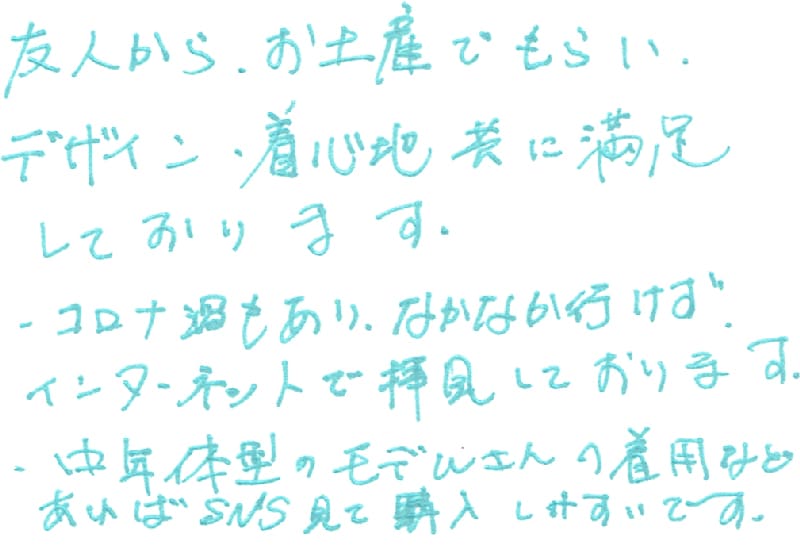 友人から、お土産でもらい、
デザイン・着心地共に満足
しております。
・コロナ渦もあり、なかなか行けず、
インターネットで拝見しております。
・中年体型のモデルさんの着用など
あればSNS見て購入しやすいです。